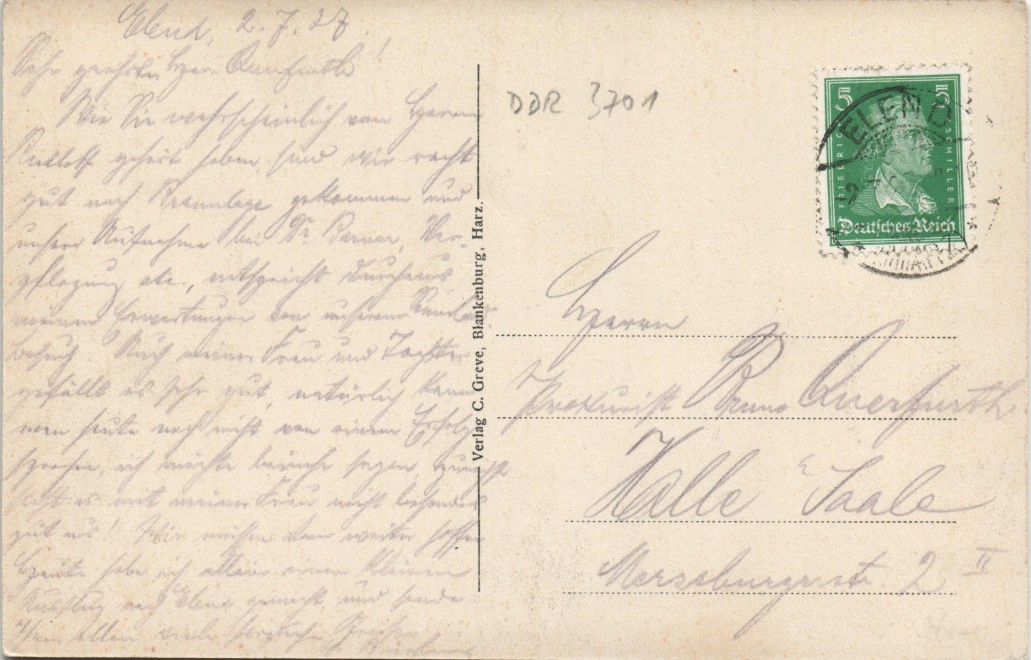 Elend, 2.7.27.
Sehr geehrter Herr Querfurth!
Wie Sie wahrscheinlich von Herrn
gehört haben, sind wir recht
gut nach Braunlage gekommen und
unsere Aufnahme bei Dr. Barner, Ver-
pflegung etc. entspricht durchaus
meinen Erwartungen von unserem
Besuch. Auch meiner Frau und Tochter
gefällt es sehr gut, natürlich kann
man heute noch nicht von einem Erfolg
sprechen, ich möchte beinahe sagen, zuerst
es mit meiner Frau nicht besonders
gut aus! Wir müssen eben weiter hoffen
Heute habe ich allein einen kleinen
Ausflug nach Elend gemacht und sende
Ihnen allen viele herzliche Grüsse
Verlag C. Greve, Blankenburg, Harz.
DDR 3701
5 5
FRIEDRICH SCHILLER
Deutsches Reich
ELEND
(HARZ)
Herrn
Prokurist Bruno Querfurth
Halle a/Saale
Merseburgerstr. 2 II